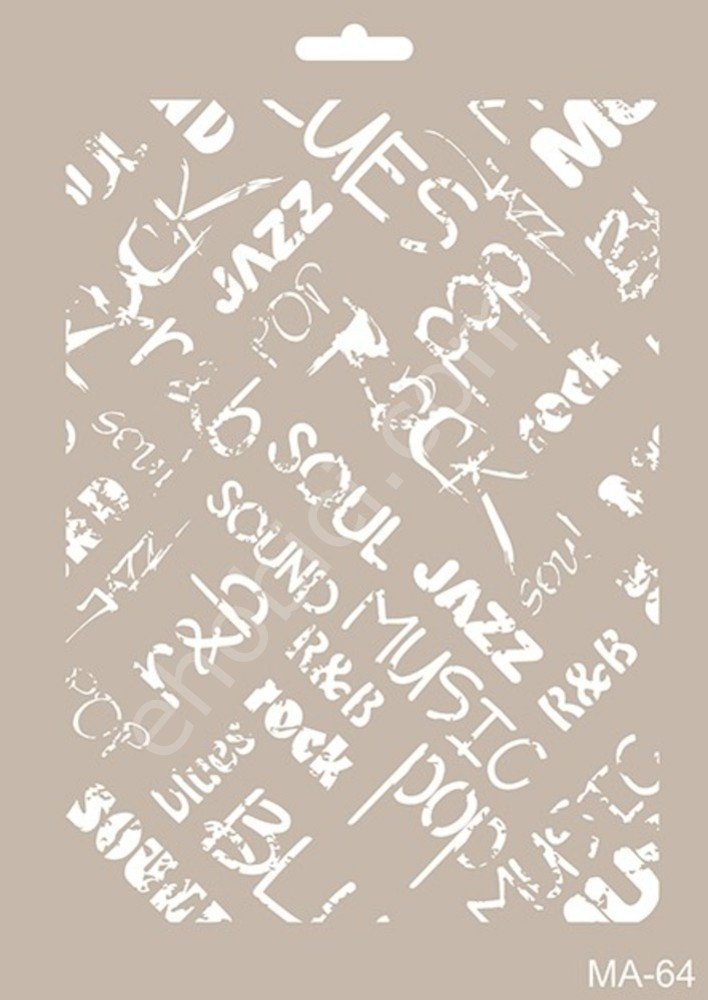 UES
JAZZ
ROCK
JAZZ
POP
pop
rock
r&b
soul
SOUL
ROCK
SOUND
JAZZ
soul
JAZZ
r&b
MUSIC
R&B
R&B
POP
rock
blues
pop
BLU
MUSIC
SOUN
ehobici.com
MA-64